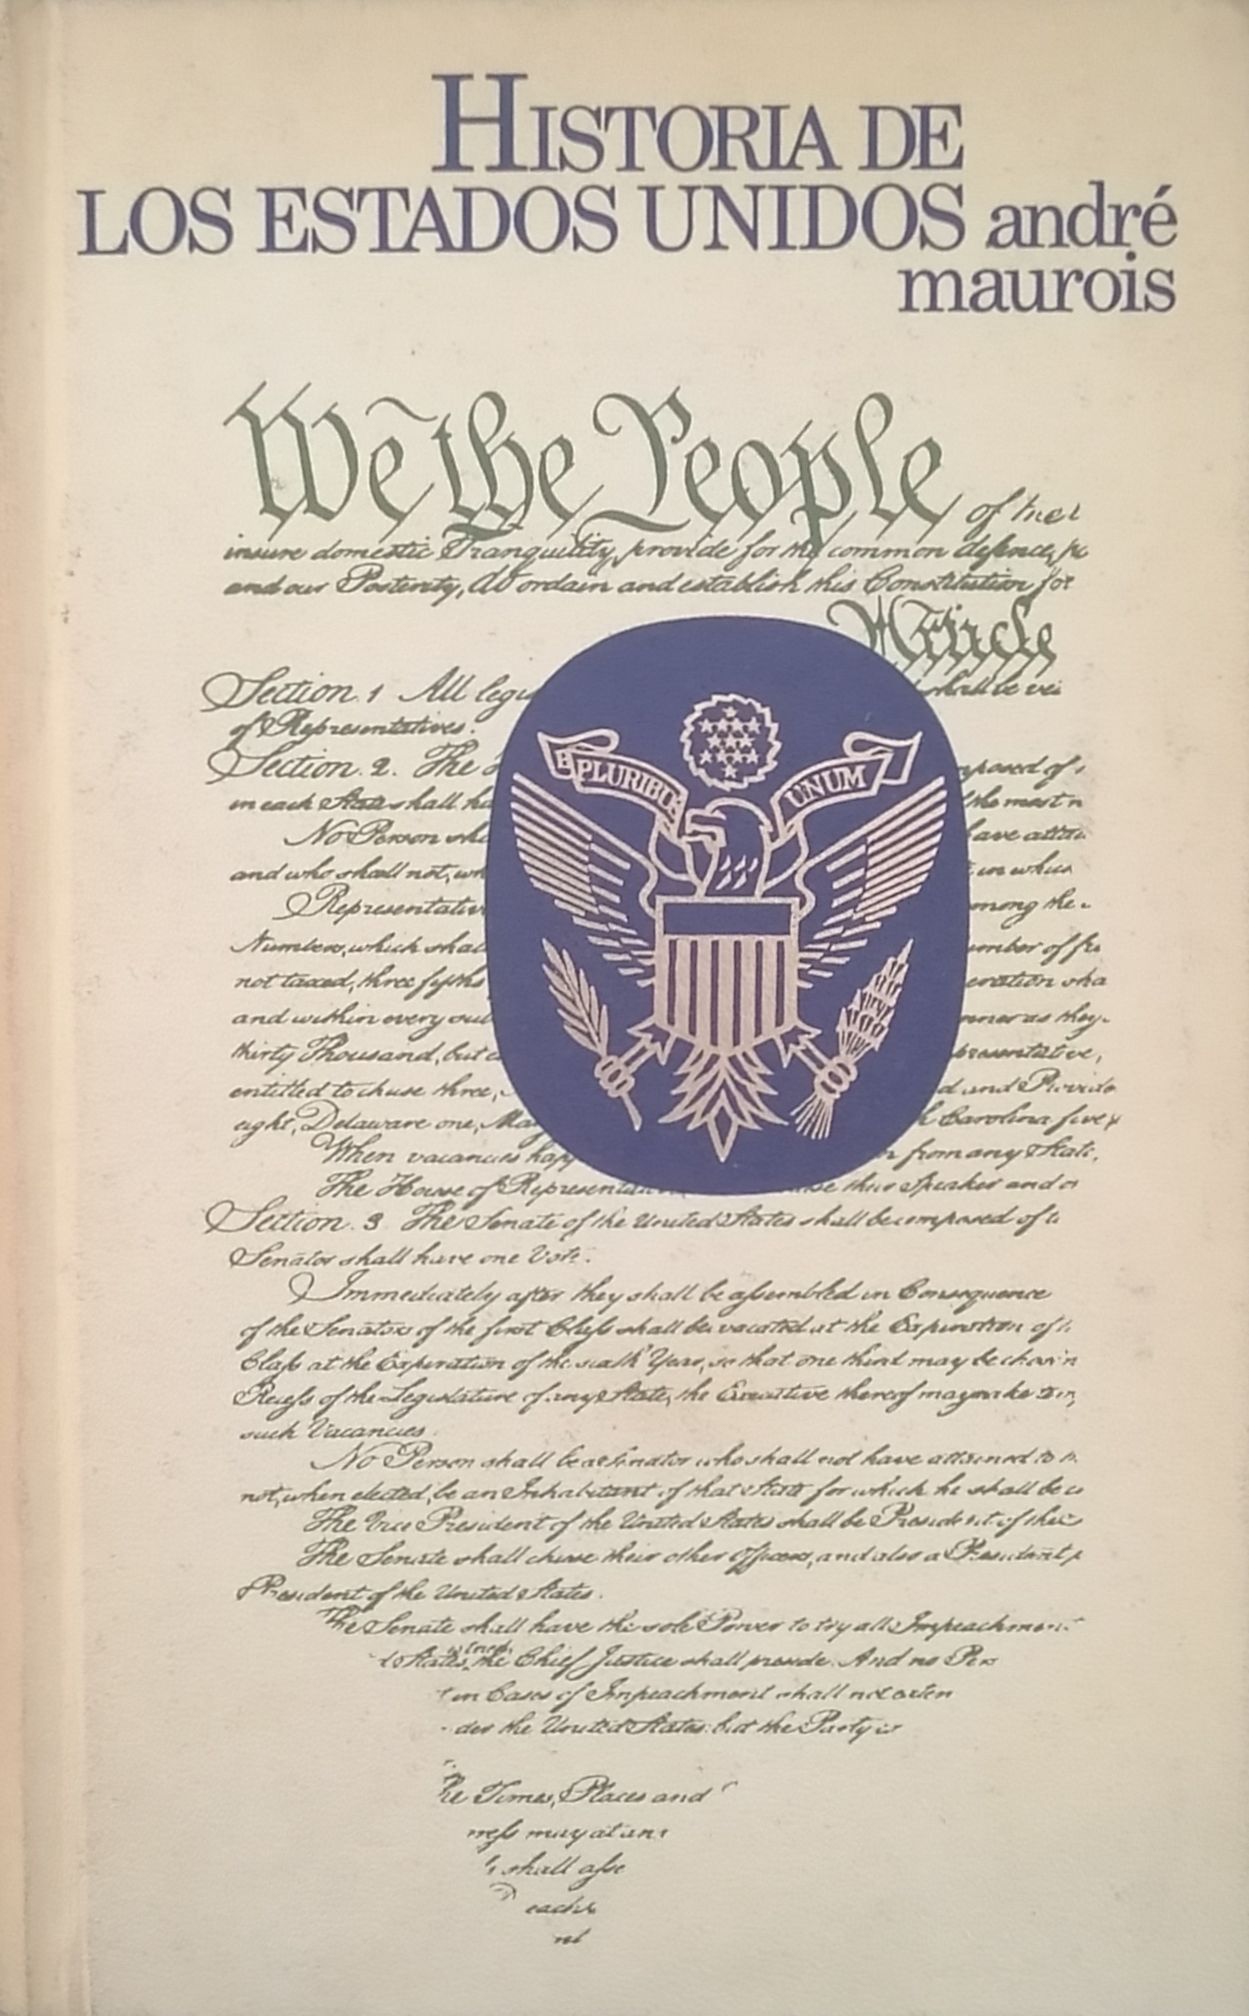 HISTORIA DE
LOS ESTADOS UNIDOS andré
maurois
We the People of the
insure domestic Tranquility, provide for the common defence,
and our Posterity, do ordain and establish this Constitution for
Article
Section. 1 All legis shall be ves
of Representatives.
Section. 2. The mposed of
in each State shall ha the most n
No Person sha have attai
and who shall not, wh in which
Representativ among the
Numbers, which shal umber of fre
not taxed, three fifths eration sha
and within every sub nner as they
thirty Thousand, but presentative,
entitled to chuse three, d and Provide
eight, Delaware one, Mary h Carolina five
When vacancies happ n from any State,
The House of Representa se their Speaker and o
Section. 3 The Senate of the United States shall be composed of t
Senator shall have one Vote.
Immediately after they shall be assembled in Consequence
of the Senators of the first Class shall be vacated at the Expiration of
Class at the Expiration of the sixth Year, so that one third may be chosen
Recess of the Legislature of any State, the Executive thereof may make
such Vacancies.
No Person shall be a Senator who shall not have attained to
not, when elected, be an Inhabitant of that State for which he shall be
The Vice President of the United States shall be President of the
The Senate shall chuse their other Officers, and also a President
President of the United States.
The Senate shall have the sole Power to try all Impeachment
States is tried, the Chief Justice shall preside. And no Per
in Cases of Impeachment shall not exten
der the United States: but the Party
he Times, Places and
ress may at an
shall asse
each
E PLURIBUS UNUM